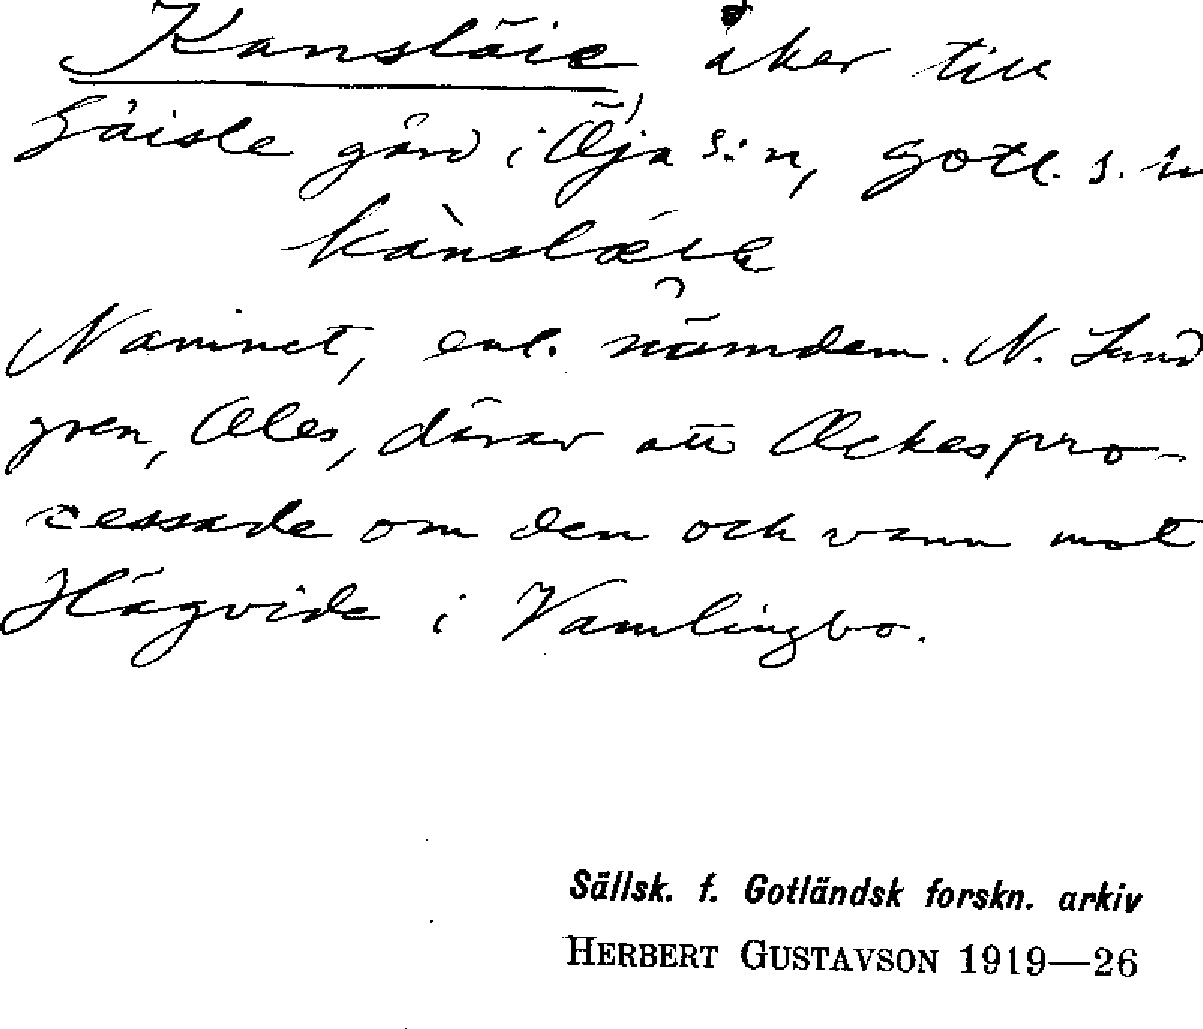 Kansläie åker till
Gåisle gård i Öja s:n, Gotl. s.
kànslæ
Namnet, enl. nämdem. N. Lund
gren, Oles, därav att Ockes pro-
cessade om den och vann mot
Hägvide i Vamlingbo.
Sällsk. f. Gotländsk forskn. arkiv
HERBERT GUSTAVSON 1919—26